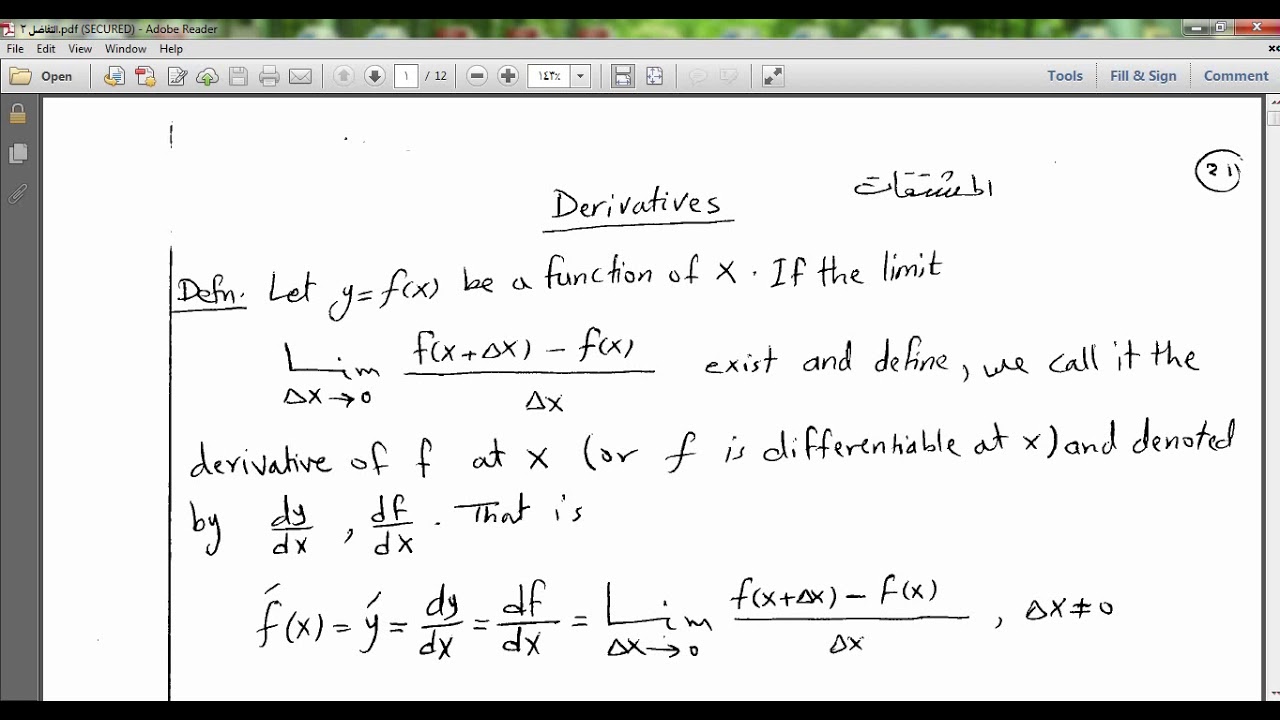 التفاضل ٢.pdf (SECURED) - Adobe Reader
File Edit View Window Help
Open ١ / 12 ١٤٣٪ Tools Fill & Sign Comment
21
Derivatives المشتقات
Defn. Let y = f(x) be a function of x. If the limit
Lim Δx→0 (f(x+Δx) − f(x)) / Δx exist and define, we call it the
derivative of f at x (or f is differentiable at x) and denoted
by dy/dx , df/dx . That is
f́(x) = ý = dy/dx = df/dx = Lim Δx→0 (f(x+Δx) − f(x)) / Δx , Δx ≠ 0